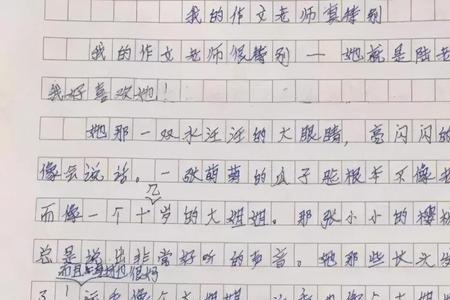 我的作文老师真特别
我的作文老师很特别—她就是陆老
我好喜欢她！
她那一双水汪汪的大眼睛，亮闪闪的
像会说话。一张萌萌的瓜子脸根本不像
而像一个十几岁的大姐姐。那张小小的樱桃
总是说出非常好听的声音。她那些长头发
而且 很好
了！ 像个大姐姐